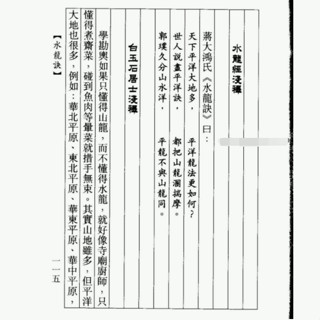 水龍經淺釋
蔣大鴻氏《水龍訣》曰：
天下平洋大地多，　平洋龍法更如何？
世人說盡平洋訣，　都把山龍瀾揣摩。
郭璞久分山水洋，　平龍不與山龍同。
白玉石居士淺釋
學勘輿如果只懂得山龍，而不懂得水龍，就好像寺廟廚師，只
懂得煮齋菜，碰到魚肉等葷菜就措手無束。其實山地雖多，但平洋
大地也很多，例如：華北平原、東北平原、華東平原、華中平原，
【水龍訣】
一一五